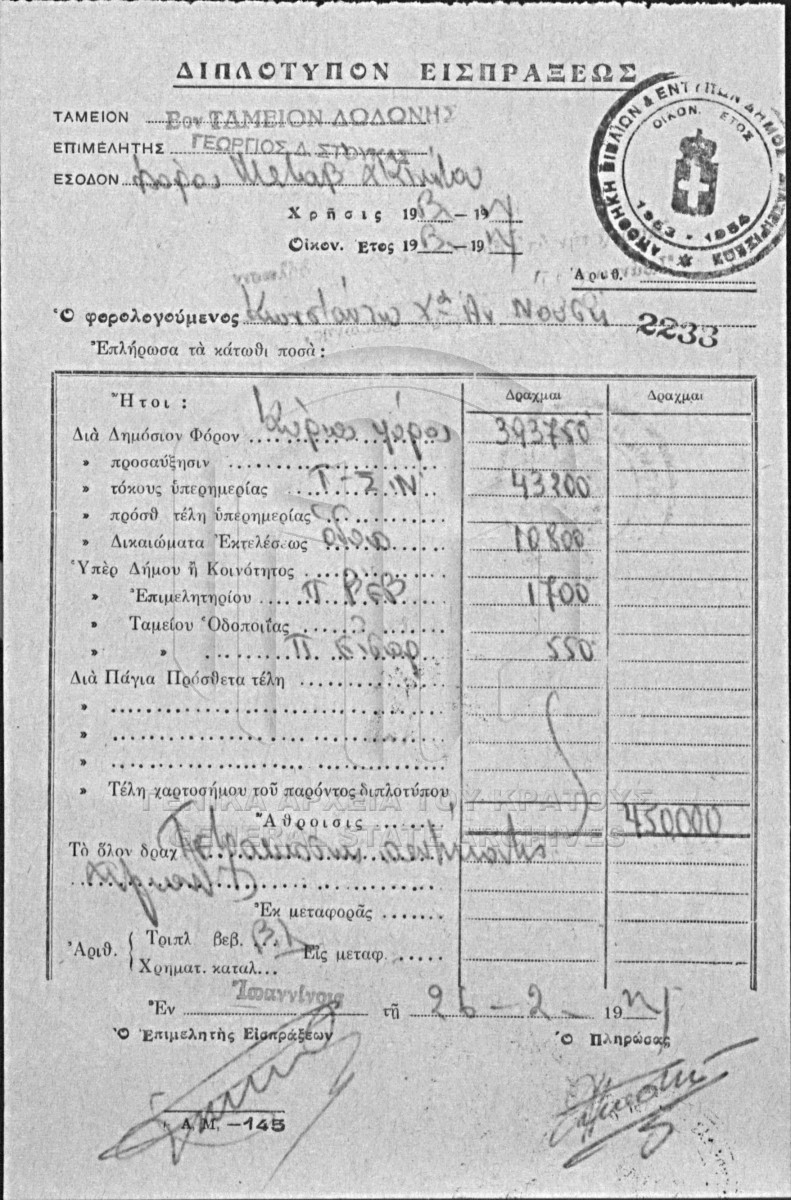 ΔΙΠΛΟΤΥΠΟΝ ΕΙΣΠΡΑΞΕΩΣ
ΑΠΟΘΗΚΗ ΒΙΒΛΙΩΝ & ΕΝΤΥΠΩΝ ΔΗΜΟΣ ΔΙΑΧΕΙΡΙΣΕΩΣ
ΟΙΚΟΝ. ΕΤΟΣ
1953 - 1954
ΤΑΜΕΙΟΝ Βον ΤΑΜΕΙΟΝ ΔΩΔΩΝΗΣ
ΕΠΙΜΕΛΗΤΗΣ ΓΕΩΡΓΙΟΣ Δ.
ΕΣΟΔΟΝ φόροι Μεταβ
Χρῆσις 19 – 19
Οἰκον. Ἔτος 19 – 19
Ἀριθ.
Ὁ φορολογούμενος Κωνσταντῖν Χα Αν Νούση 2233
Ἐπλήρωσα τὰ κάτωθι ποσὰ :
Ἤτοι : Δραχμαι Δραχμαι
Διὰ Δημόσιον Φόρον Κύριος φόρος 393750
» προσαύξησιν
» τόκους ὑπερημερίας 43200
» πρόσθ τέλη ὑπερημερίας
» Δικαιώματα Ἐκτελέσεως 10800
Ὑπὲρ Δήμου ἢ Κοινότητος
» Ἐπιμελητηρίου 1700
» Ταμείου Ὁδοποιΐας
» » Π. 550
Διὰ Πάγια Πρόσθετα τέλη
»
»
»
» Τέλη χαρτοσήμου τοῦ παρόντος διπλοτύπου
ΓΕΝΙΚΑ ΑΡΧΕΙΑ ΤΟΥ ΚΡΑΤΟΥΣ
Ἄθροισις 450000
GENERAL STATE ARCHIVES
Τὸ ὅλον δραχ Τετρακόσιαι πεντήκοντα
χιλιάδες
Ἐκ μεταφορᾶς
Ἀριθ. { Τριπλ βεβ. Εἰς μεταφ.
Χρηματ. καταλ...
Ἐν Ἰωαννίνοις τῇ 26 – 2 – 19
Ὁ Ἐπιμελητὴς Εἰσπράξεων Ὁ Πληρώσας
Α Μ, –145